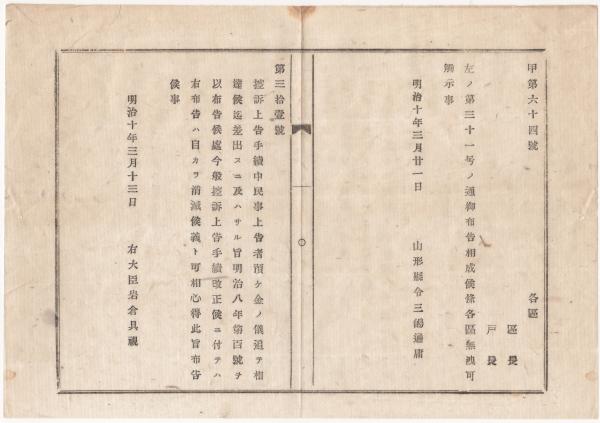 甲第六十四號
各區
區長
戸長
左ノ第三十一号ノ通御布告相成候條各區無洩可
觸示事
明治十年三月廿一日
山形縣令三島通庸
第三拾壹號
控訴上告手續中民事上告者預ケ金ノ儀追テ相
達候迄差出スニ及ハサル旨明治八年第百號ヲ
以布告候處今般控訴上告手續改正候ニ付テハ
右布告ハ自カラ消滅候義ト可相心得此旨布告
候事
明治十年三月十三日
右大臣岩倉具視